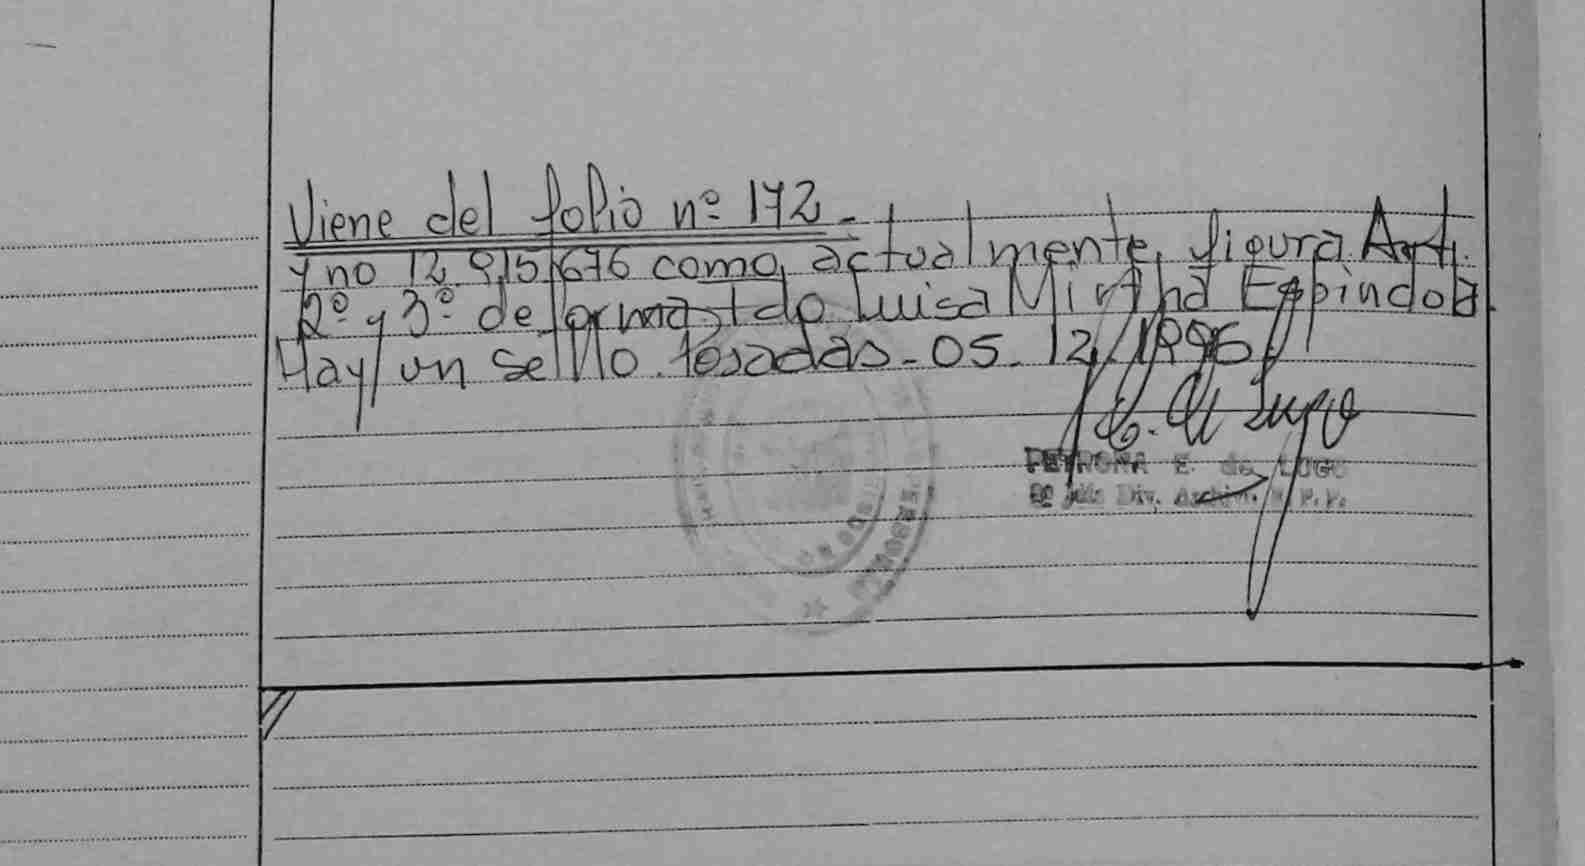 Viene del folio nº 172.-
y no 12.915.676 como actualmente, figura Art.
2º y 3º de forma Fdo Luisa Mirtha Espindola.
Hay un sello. Posadas-05-12/1996
E. de Lugo
PETRONA E. de LUGO
Div. Archivo R.P.P.